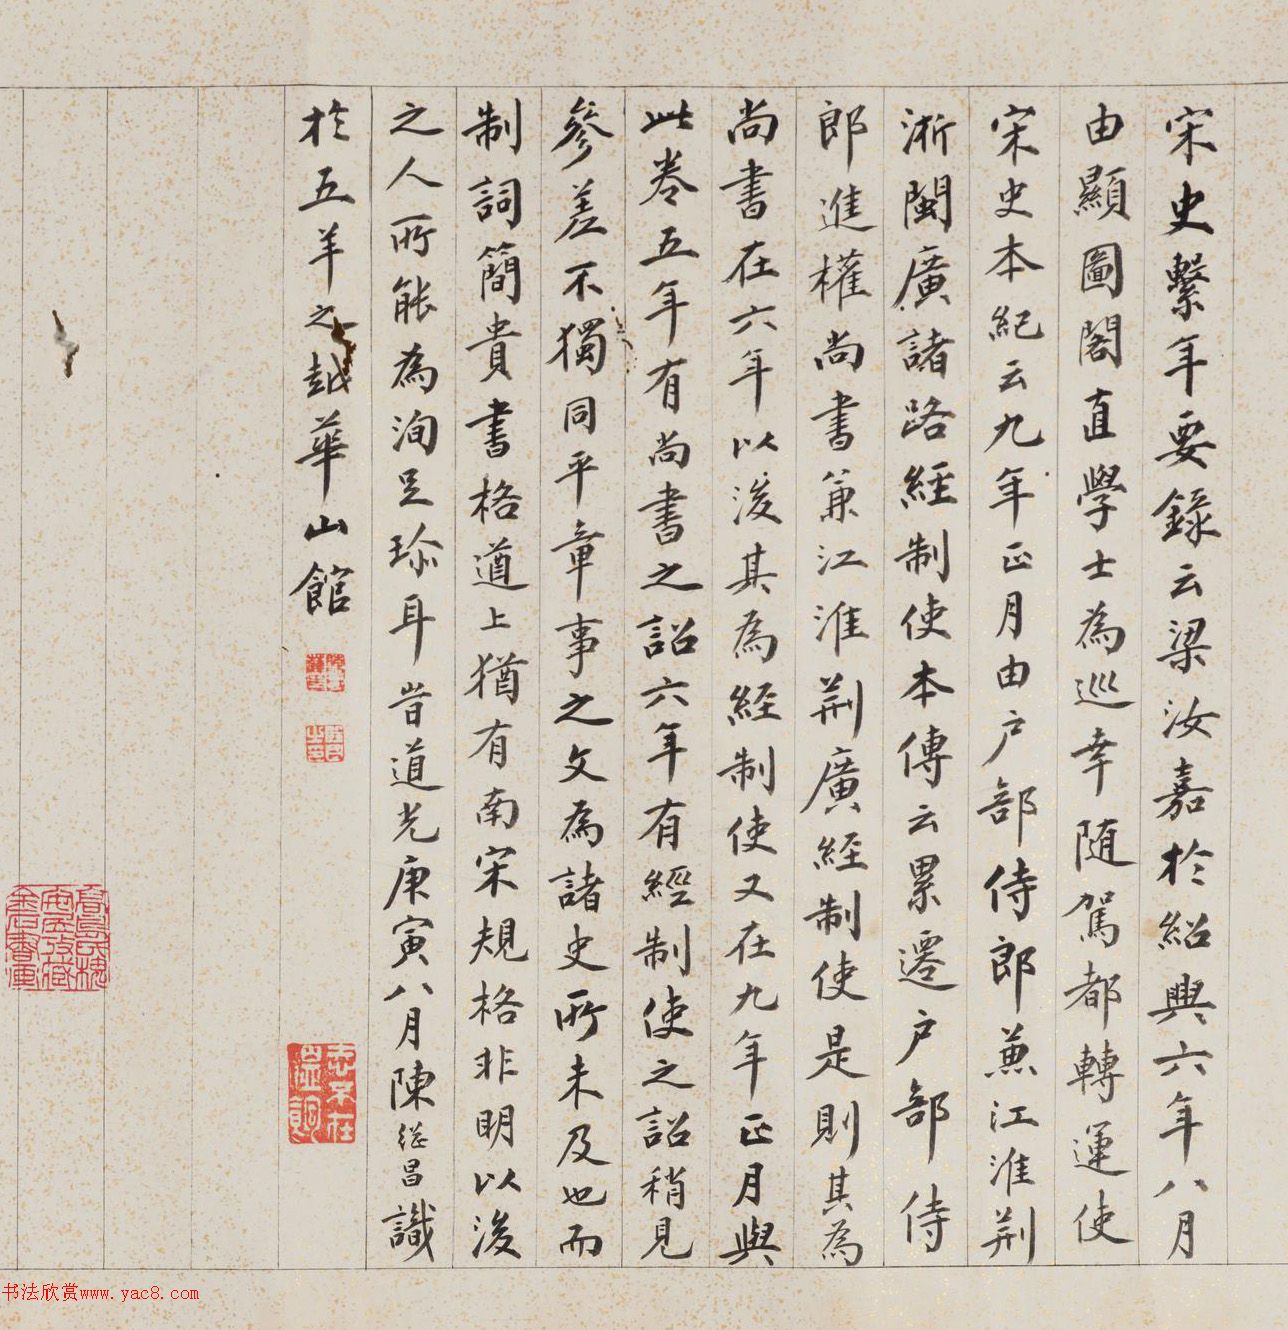 宋史繫年要錄云梁汝嘉於紹興六年八月
由顯圖閣直學士為巡幸隨駕都轉運使
宋史本紀云九年正月由户部侍郎兼江淮荆
淅閩廣諸路經制使本傳云累遷户部侍
郎進權尚書兼江淮荆廣經制使是則其為
尚書在六年以後其為經制使又在九年正月與
此卷五年有尚書之詔六年有經制使之詔稍見
參差不獨同平章事之文為諸史所未及也而
制詞簡貴書格遒上猶有南宋規格非明以後
之人所能為洵足珍耳旹道光庚寅八月陳繼昌識
於五羊之越華山館
书法欣赏www.yac8.com